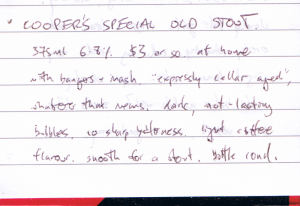 • COOPER'S SPECIAL OLD STOUT.
375ml 6.8% $3 or so. at home
with bangers + mash. "expressly cellar aged",
whatever that means. dark, not-lasting
bubbles. no sharp bitterness. light coffee
flavour. smooth for a stout. bottle cond.